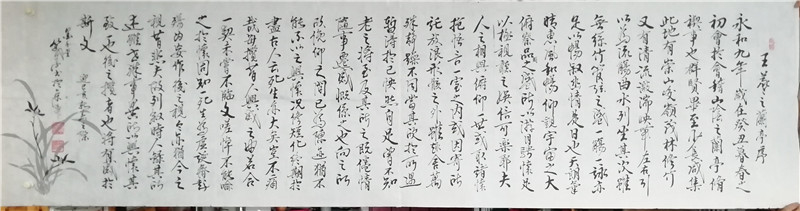 王羲之蘭亭序
永和九年歲在癸丑暮春之
初會於會稽山陰之蘭亭脩
禊事也群賢畢至少長咸集
此地有崇山峻嶺茂林修竹
又有清流激湍映帶左右引
以為流觴曲水列坐其次雖
無絲竹管弦之盛一觴一詠亦
足以暢敘幽情是日也天朗氣
清惠風和暢仰觀宇宙之大
俯察品類之盛所以遊目騁懷足
以極視聽之娛信可樂也夫
人之相與俯仰一世或取諸懷
抱悟言一室之內或因寄所
託放浪形骸之外雖趣舍萬
殊靜躁不同當其欣於所遇
暫得於己快然自足不知
老之將至及其所之既倦情
隨事遷感慨係之矣向之所
欣俯仰之間已為陳迹猶不
能不以之興懷況修短隨化終期於
盡古人云死生亦大矣豈不痛
哉每攬昔人興感之由若合
一契未嘗不臨文嗟悼不能喻
之於懷固知死生為虛誕齊彭
殤為妄作後之視今亦猶今之
視昔悲夫故列敘時人錄其所
述雖世殊事異所以興懷其
致一也後之攬者亦將有感於
斯文